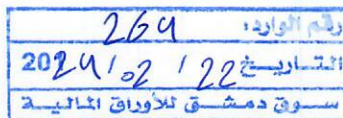 رقم الوارد: 264
التاريخ 22 / 02 / 2024
سوق دمشق للأوراق المالية